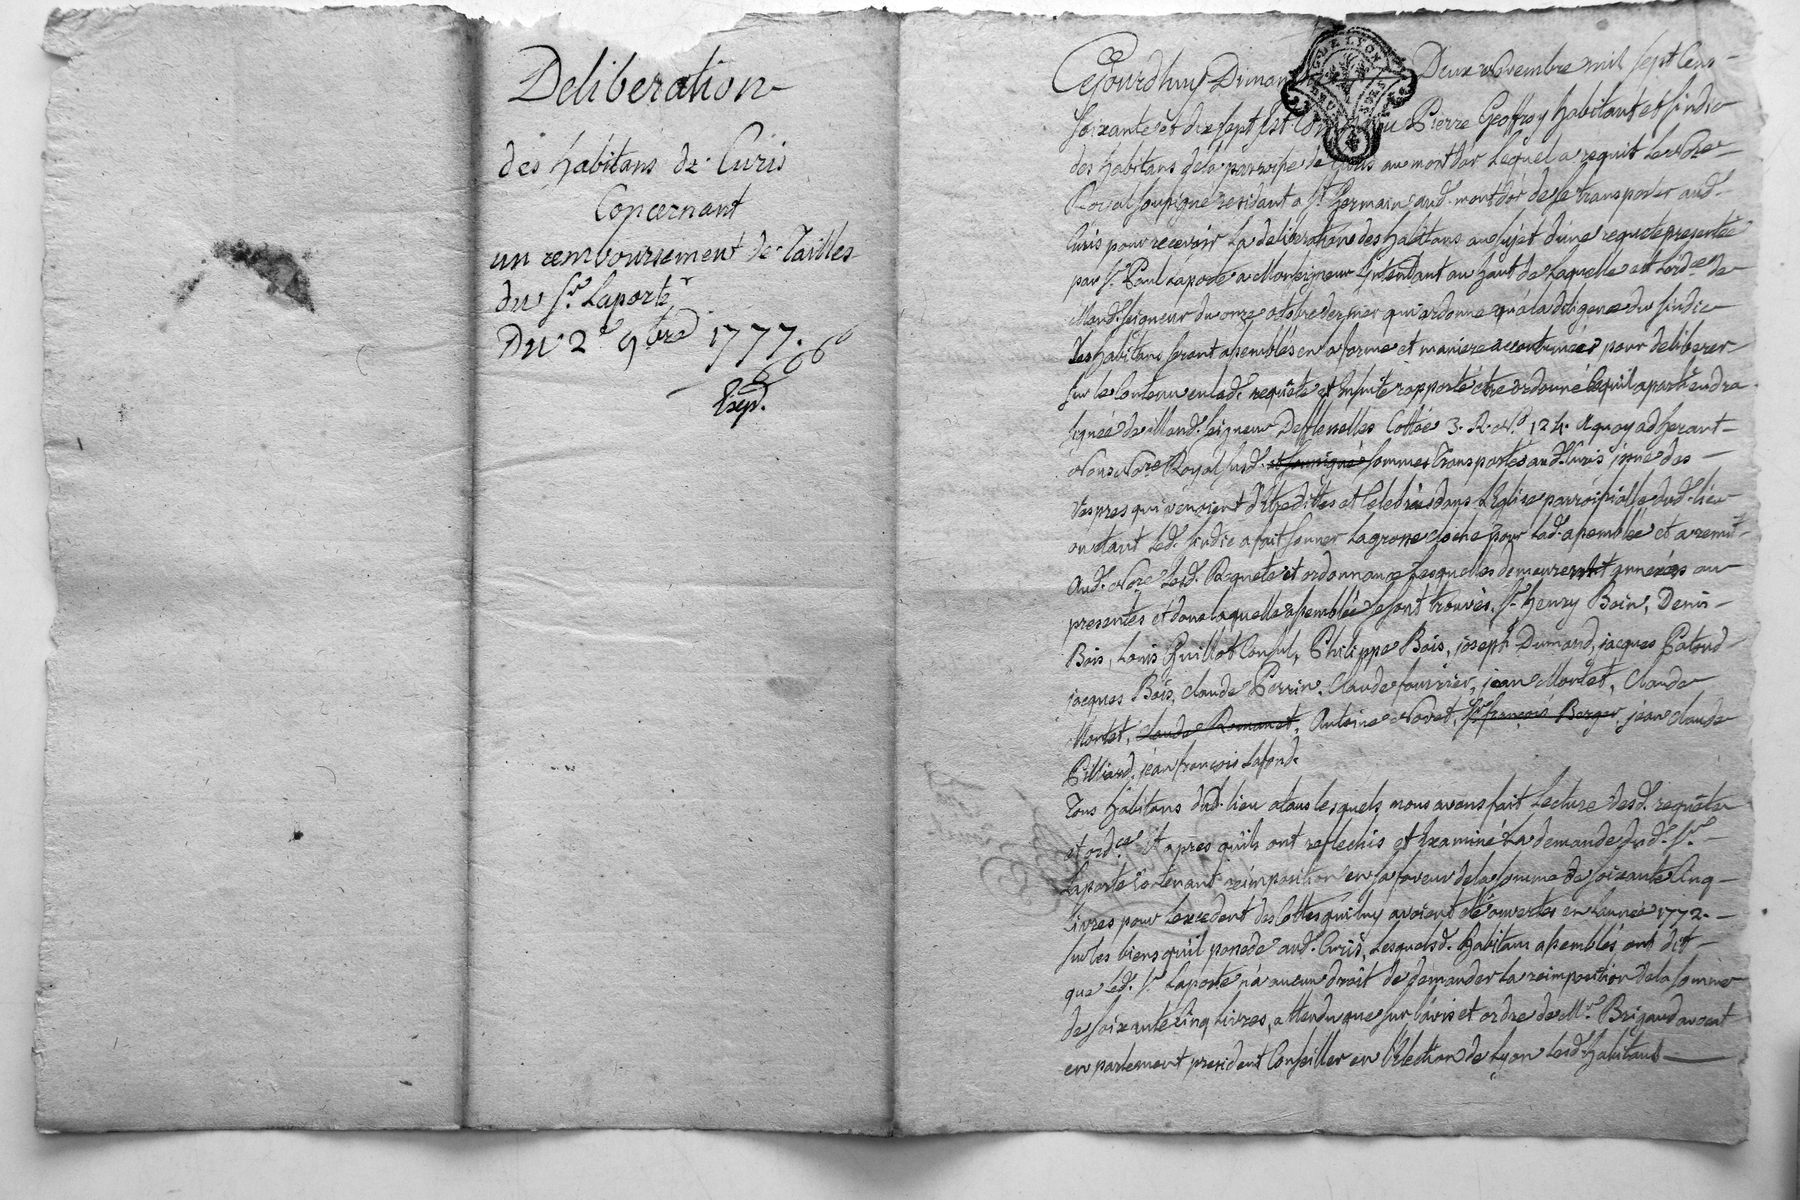 Deliberation
des habitans de Curis
Concernant
un remboursement de Tailles
du Sr. Laporte
Du 2e 9bre 1777.
Exp.
Cejourdhuy Diman Deux Novembre mil sept Cens
soixante et dix sept Est Pierre Geoffroy habitant et sindic
des habitans de la parroisse de Curis au mont dor Lequel a requit Le Nore
Royal soussigné residant a St. Germain aud. mont dor de se transporter aud.
Curis pour recevoir La deliberation des habitans au sujet d'une requete presentée
par Sr. Paul Laporte a Monseigneur Lintendant au haut de Laquelle est Lord.ce de
Mond. seigneur du onze octobre dernier qui ordonne qu'a la diligence du sindic
Les habitans seront assemblés en la forme et maniere accoutumées pour deliberer
sur le Contenu en lad. requete et Ensuite rapporté etre ordonné Cequil apartiendra
signée de Mond. seigneur Deflesselles Cottée 3. R. No. 124. Aquoy adherant
Nous Nore Royal susd. et soussigné sommes transportés aud. Curis issue des
Vespres qui venoient d'etre dittes et Celebrées dans L'Eglise parroissialle dud. lieu
ou etant Led. sindic a fait sonner La grosse cloche pour Lad. assemblée et a remit
aud. Nore Lesd. Requete et ordonnance Lesquelles demeureront annexées au
presentes et dans laquelle assemblée se sont trouvés, Sr. henry Boin, Denis
Bois, Louis Guillot Consul, Philippe Bois, joseph Dumand, jacques Patoud
jacques Bois, claude Perrin, Claude fournier, jean Montet, Claude
Montet, claude Romanet, Antoine Novet, Sr. françois Berger, jean claude
Billiard, jean françois Lafond.
Tous habitans dud. lieu a tous lesquels nous avons fait Lecture desd. requete
et ord.ce Et apres qu'ils ont reflechis et Examiné La demande dud. Sr.
Laporte Contenant reimposition en sa faveur de la somme de soixante Cinq
Livres pour L'excedent des Cottes qui luy avoient eté ouvertes en L'année 1772.
sur les biens qu'il possede aud. Curis, Lesquelsd. habitans assemblés ont dit
que Led. Sr. Laporte n'a aucun droit de demander La reimposition de la somme
de soixante Cinq Livres, attendu que sur l'avis et ordre de Mre. Brigaud avocat
en parlement president Conseiller en L'Election de Lyon Lesd. habitans